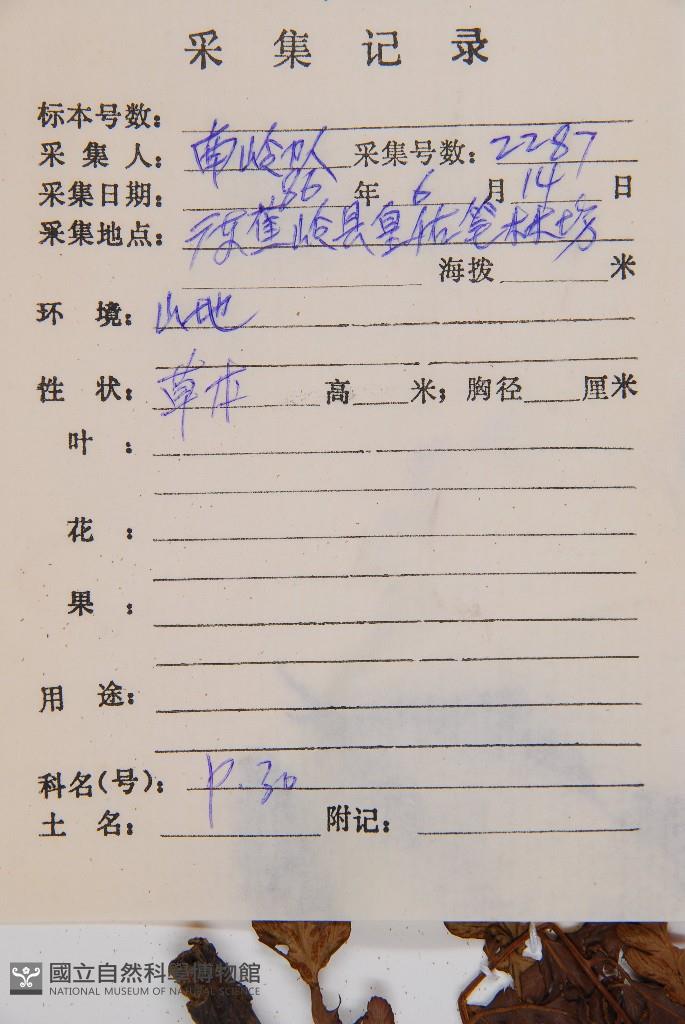 采集记录
标本号数:
采集人: 南岭队 采集号数: 2287
采集日期: 86年6月14日
采集地点: 广东蕉岭县皇佑笔林场
海拨 米
环境: 山地
性状: 草本 高 米; 胸径 厘米
叶:
花:
果:
用途:
科名(号): P.30
土名: 附记:
國立自然科學博物館
NATIONAL MUSEUM OF NATURAL SCIENCE